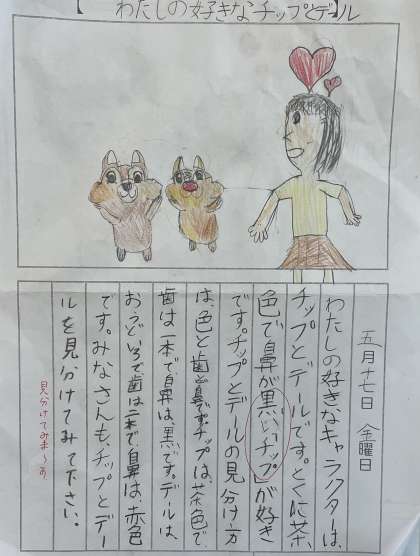 【わたしの好きなチップとデール
五月十七日 金曜日
わたしの好きなキャラクターは、
チップとデールです。とくに茶
色で鼻が黒いチップが好き
です。チップとデールの見分け方
は、色と歯と鼻です。チップは、茶色で
歯は一本で鼻は、黒いです。デールは、
おうどいろで歯は二本で鼻は、赤色
です。みなさんも、チップとデー
ルを見分けてみて下さい。
見分けてみま〜す